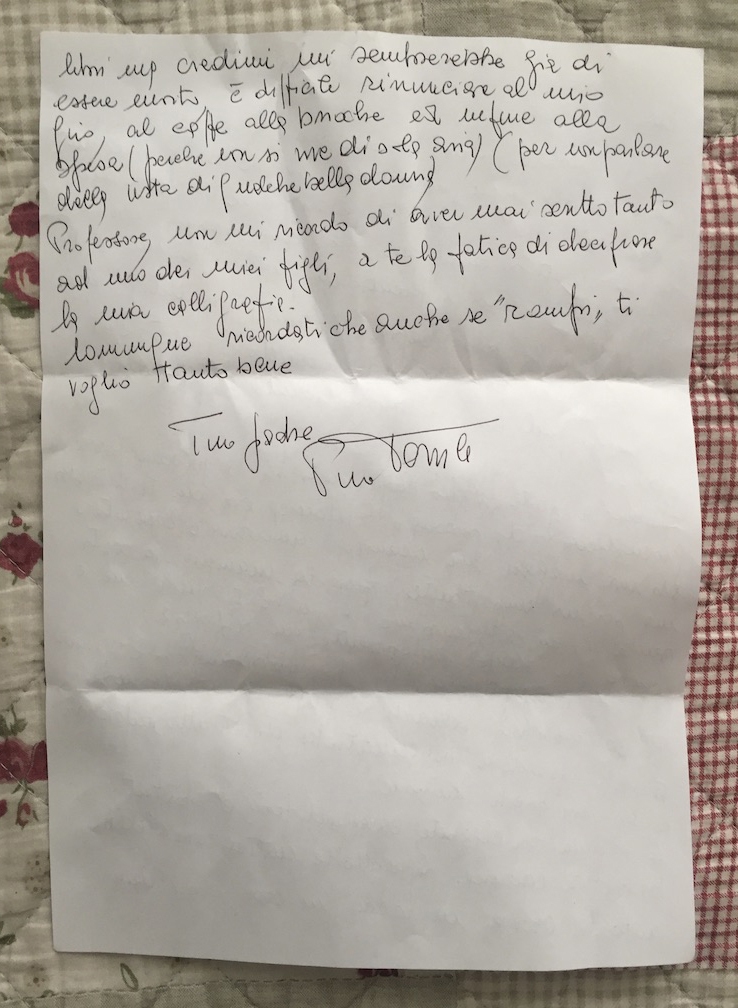 libri ma credimi mi sembrerebbe già di
essere morto, è difficile rinunciare al mio
giro, al caffe alla brioche ed infine alla
spesa (perche non si vive di sola aria) (per non parlare
della vista di qualche bella donna)
Professore, non mi ricordo di aver mai scritto tanto
ad uno dei miei figli, a te la fatica di decifrare
la mia calligrafia.
Comunque ricordati che anche se "rompi" ti
voglio tanto bene
Tuo padre
Pino